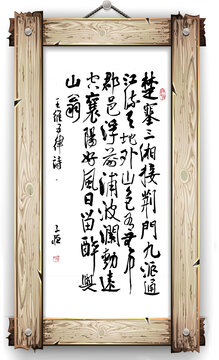 楚塞三湘接荆门九派通
江流天地外山色有无中
郡邑浮前浦波瀾動遠
空襄陽好风日留醉與
山翁
王维五律诗